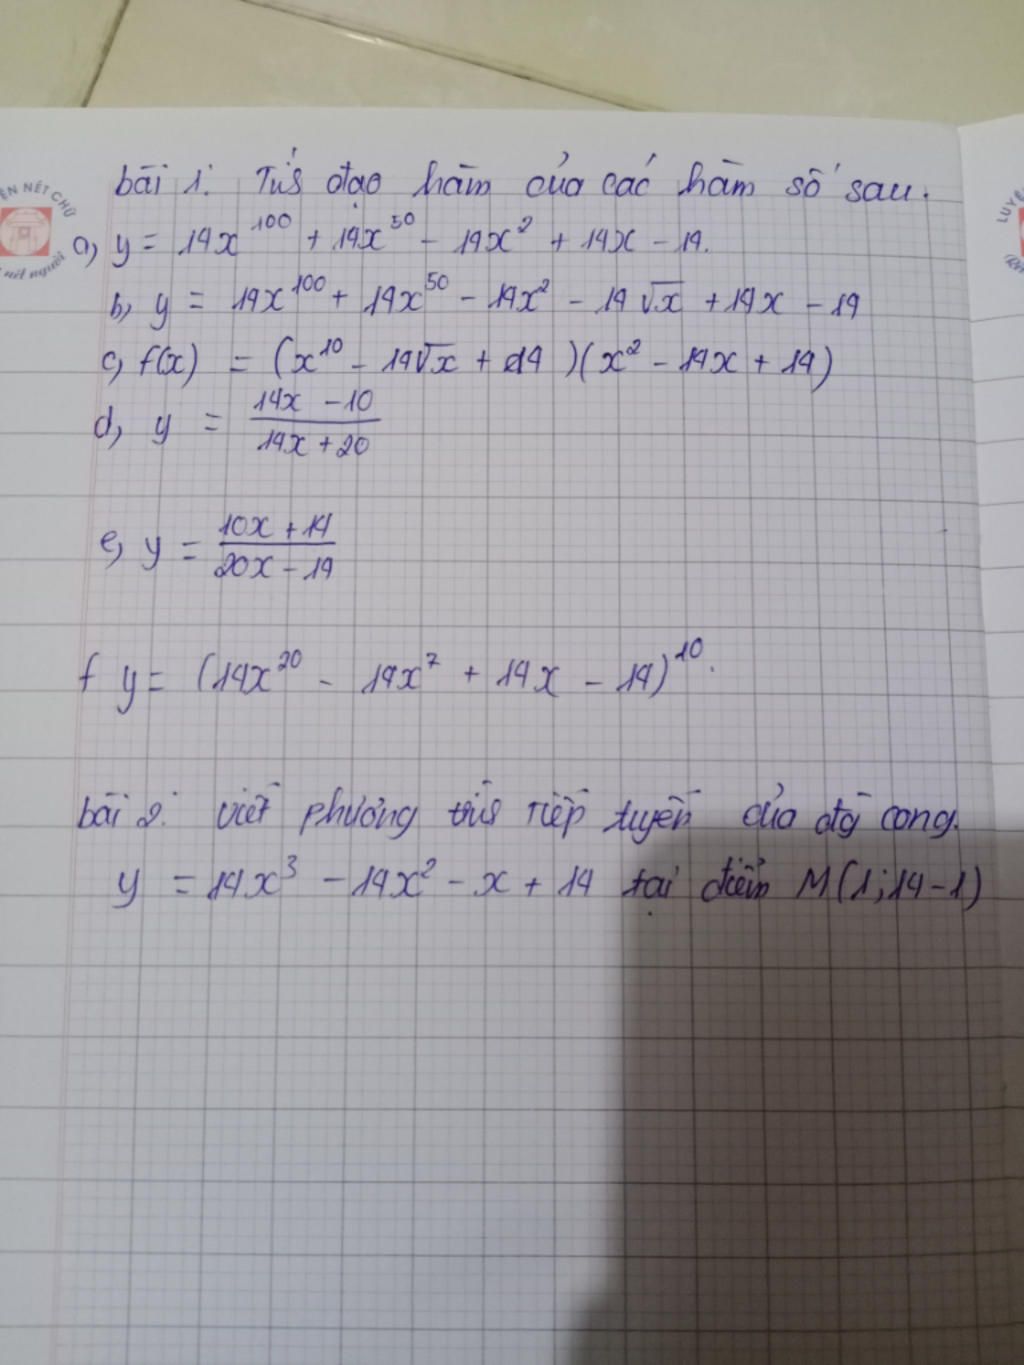 bài 1: Tính đạo hàm của các hàm số sau.
a, y = 14x^100 + 14x^50 - 14x^2 + 14x - 14.
b, y = 14x^100 + 14x^50 - 14x^2 - 14√x + 14x - 14
c, f(x) = (x^10 - 14√x + 14)(x^2 - 14x + 14)
d, y = (14x - 10)/(14x + 20)
e, y = (10x + 14)/(20x - 14)
f y = (14x^20 - 14x^7 + 14x - 14)^10.
bài 2: Viết phương trình tiếp tuyến của đg cong.
y = 14x^3 - 14x^2 - x + 14 tại điểm M(1;14-1)